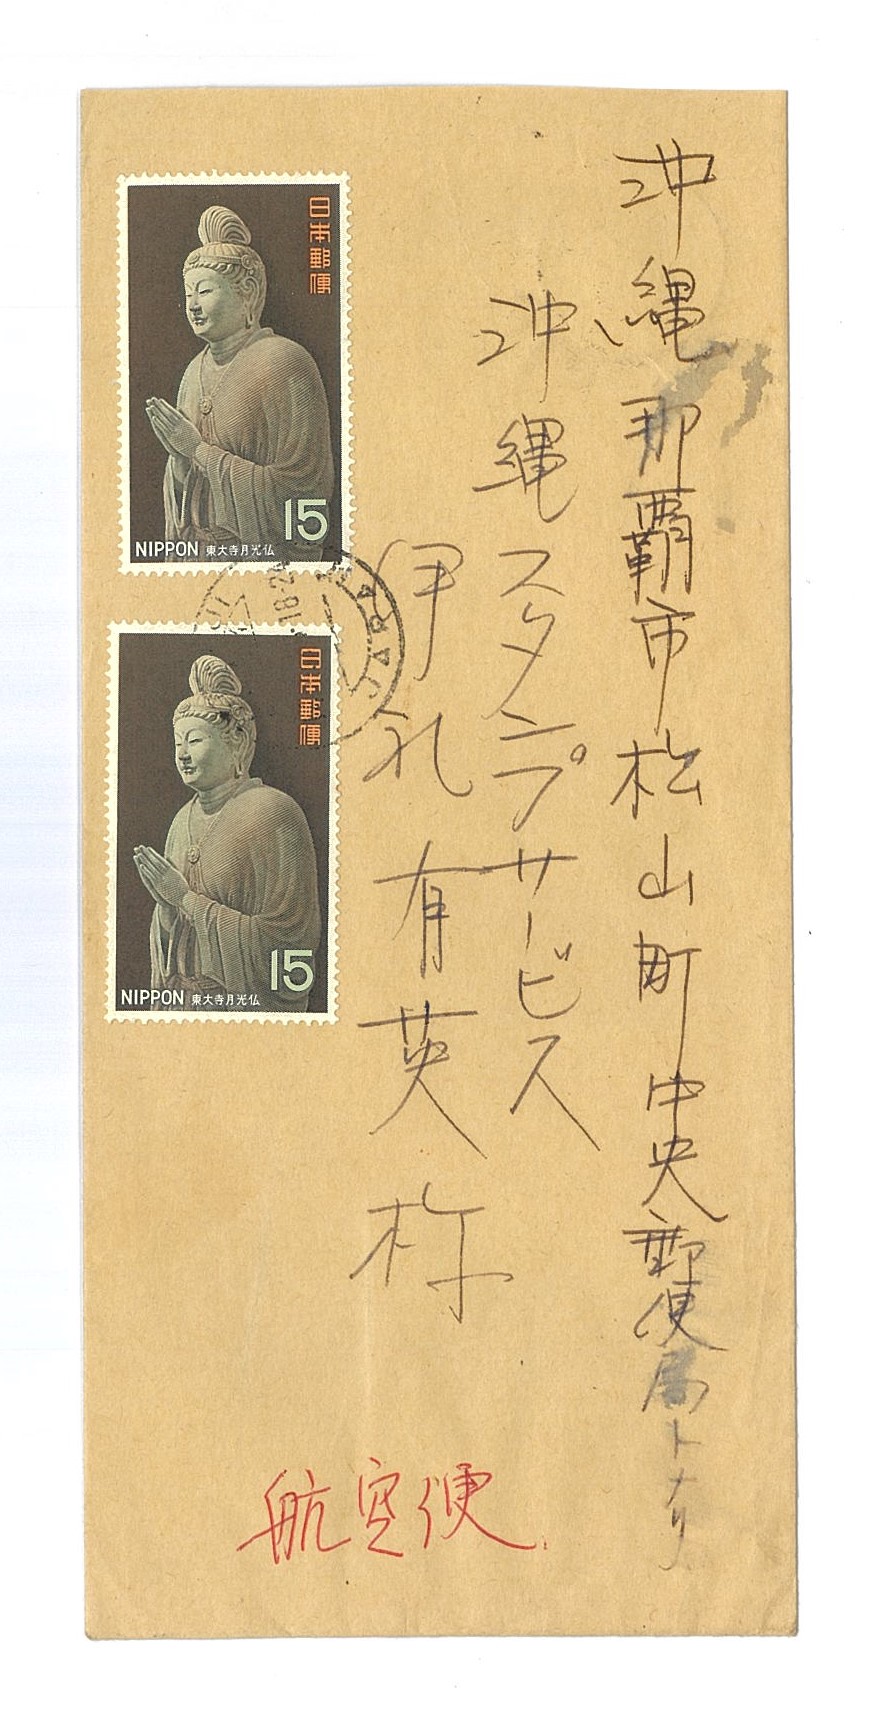 沖縄那覇市松山町中央郵便局トナリ
沖縄スタンプサービス
伊礼有英様
航空便
日本郵便
15
NIPPON 東大寺月光仏
日本郵便
15
NIPPON 東大寺月光仏
JAPA